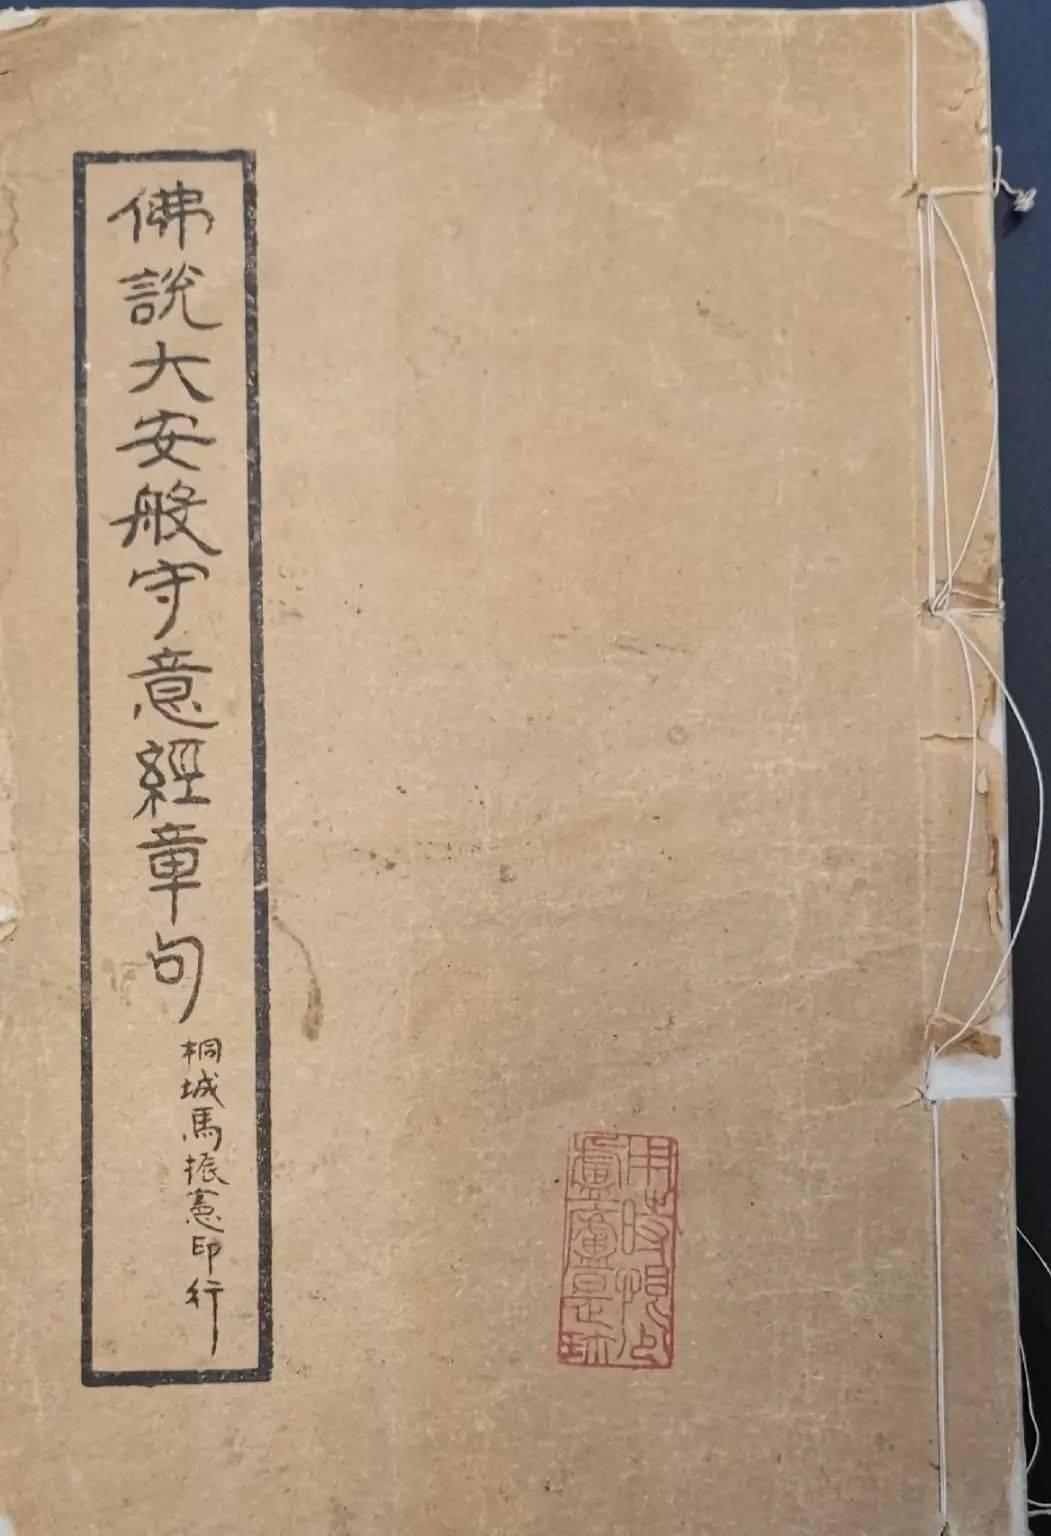 佛說大安般守意經章句
桐城馬振憲印行